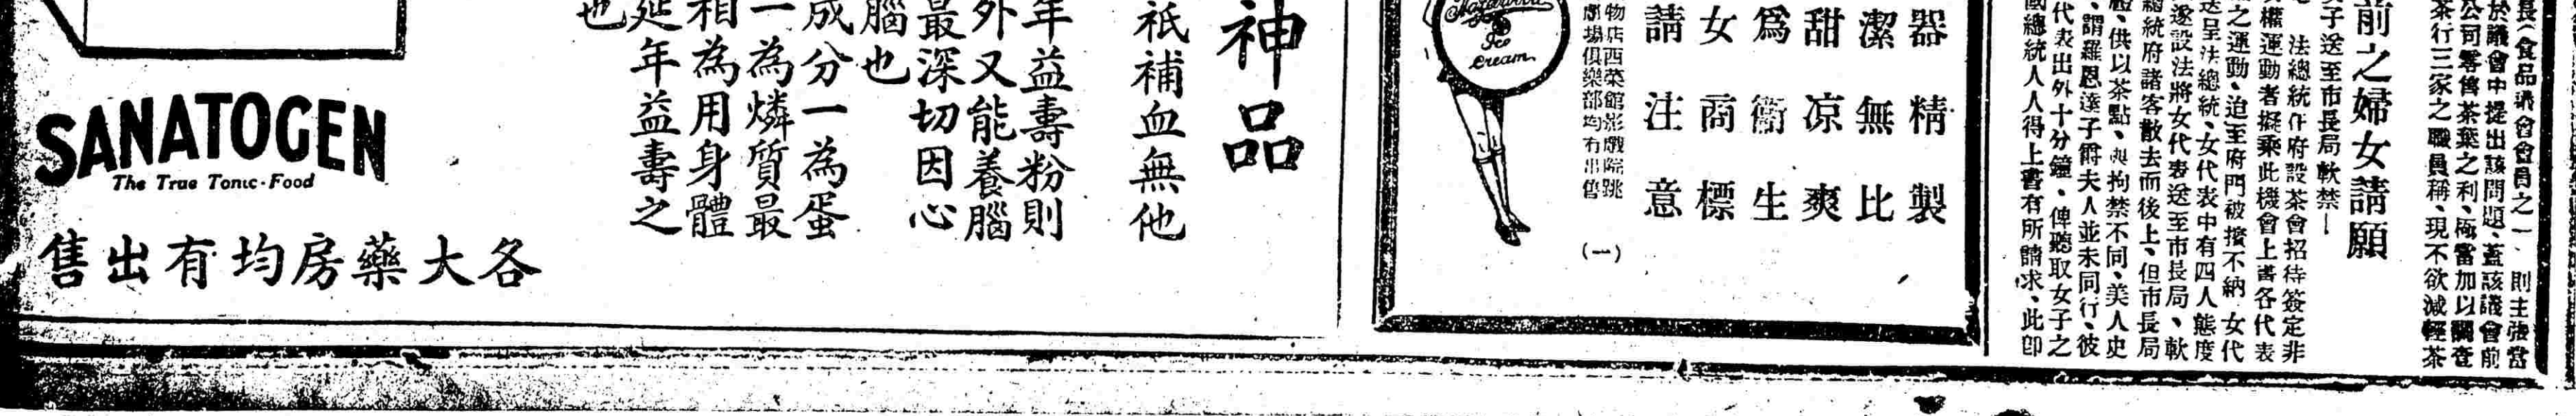 長(食品議會會員之一、則主張當
於議會中提出該問題、蓋該議會前
公司零售茶葉之利、極當加以調查
茶行三家之職員稱、現不欲減輕茶
前之婦女請願
女子送至市長局軟禁—
法總統任府設茶會招待簽定非
權運動者擬乘此機會上書各代表
之運動、迨至府門被擋不納、女代
送呈法總統、女代表中有四人態度
遂設法將女代表送至市長局、軟
總統府諸客散去而後上、但市長局
供以茶點、與拘禁不同、美人史
謂羅恩達子爵夫人並未同行、彼
代表出外十分鐘、俾聽取女子之
國總統人人得上書有所請求、此卽
器精製
潔無比
甜凉爽
爲衞生
女商標
請注意
物店西菜館影戲院跳
劇場俱樂部均有出售
(一)
Hazelwood
Ice
Cream
神品
祇補血無他
年益壽粉則
外又能養腦
最深切因心
腦也
成分一為蛋
一為燐質最
相為用身體
延年益壽之
也
SANATOGEN
The True Tonic-Food
各大藥房均有出售